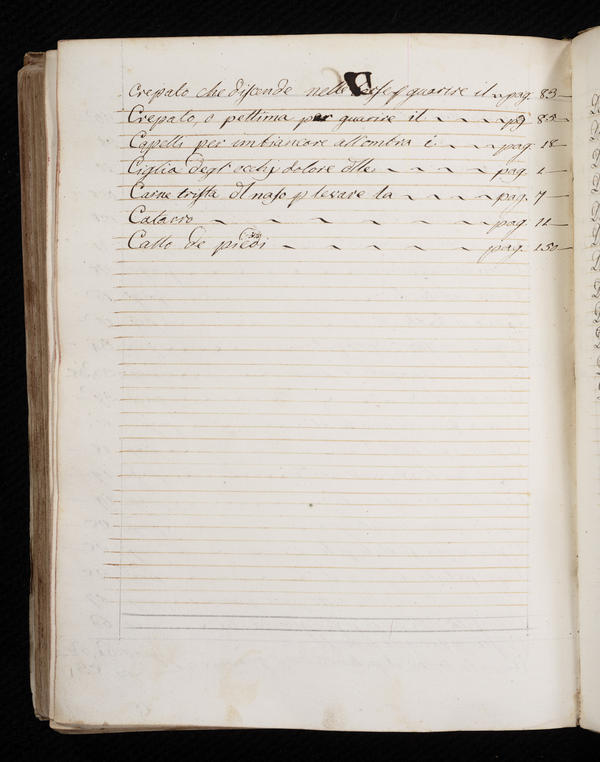 Crepalo che discende nelle p guarire il pag. 83
Crepalo, o pettima per guarire il pag 85
Capelli per imbiancare all'ombra i pag. 18
Ciglia degl' occhj dolore delle pag. 1
Carne trista dl naso p levare la pag. 7
Cataro pag. 12
Callo de piedi pag. 150